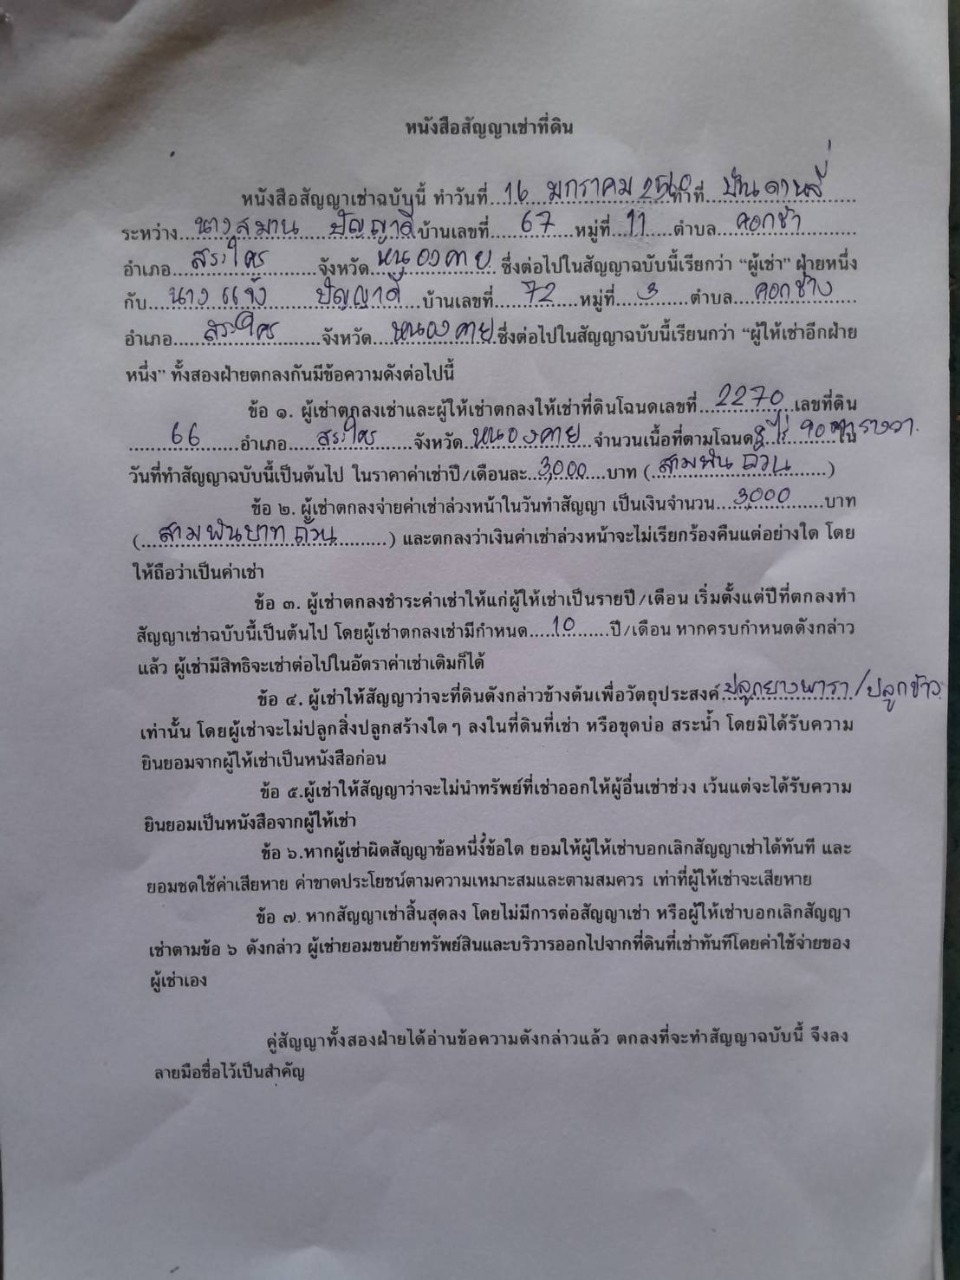 หนังสือสัญญาเช่าที่ดิน
หนังสือสัญญาเช่าฉบับนี้ ทำวันที่ 16 มกราคม ทำที่
ระหว่าง นางสมาน ปัญญาดี บ้านเลขที่ 67 หมู่ที่ 11 ตำบล คอกช้า
อำเภอ สระใคร จังหวัด หนองคาย ซึ่งต่อไปในสัญญาฉบับนี้เรียกว่า “ผู้เช่า” ฝ่ายหนึ่ง
กับ นางแจ้ง ปัญญาดี บ้านเลขที่ 72 หมู่ที่ 3 ตำบล คอกช้าง
อำเภอ สระใคร จังหวัด หนองคาย ซึ่งต่อไปในสัญญาฉบับนี้เรียนกว่า “ผู้ให้เช่าอีกฝ่าย
หนึ่ง” ทั้งสองฝ่ายตกลงกันมีข้อความดังต่อไปนี้
ข้อ ๑. ผู้เช่าตกลงเช่าและผู้ให้เช่าตกลงให้เช่าที่ดินโฉนดเลขที่ 2270 เลขที่ดิน
66 อำเภอ สระใคร จังหวัด หนองคาย จำนวนเนื้อที่ตามโฉนด ไร่ ใน
วันที่ทำสัญญาฉบับนี้เป็นต้นไป ในราคาค่าเช่าปี/เดือนละ 3,000 บาท (สามพันถ้วน)
ข้อ ๒. ผู้เช่าตกลงจ่ายค่าเช่าล่วงหน้าในวันทำสัญญา เป็นเงินจำนวน 3000 บาท
(สามพันบาทถ้วน) และตกลงว่าเงินค่าเช่าล่วงหน้าจะไม่เรียกร้องคืนแต่อย่างใด โดย
ให้ถือว่าเป็นค่าเช่า
ข้อ ๓. ผู้เช่าตกลงชำระค่าเช่าให้แก่ผู้ให้เช่าเป็นรายปี/เดือน เริ่มตั้งแต่ปีที่ตกลงทำ
สัญญาเช่าฉบับนี้เป็นต้นไป โดยผู้เช่าตกลงเช่ามีกำหนด 10 ปี/เดือน หากครบกำหนดดังกล่าว
แล้ว ผู้เช่ามีสิทธิจะเช่าต่อไปในอัตราค่าเช่าเดิมก็ได้
ข้อ ๔. ผู้เช่าให้สัญญาว่าจะที่ดินดังกล่าวข้างต้นเพื่อวัตถุประสงค์ ปลูกยางพารา/ปลูกข้าว
เท่านั้น โดยผู้เช่าจะไม่ปลูกสิ่งปลูกสร้างใดๆ ลงในที่ดินที่เช่า หรือขุดบ่อ สระน้ำ โดยมิได้รับความ
ยินยอมจากผู้ให้เช่าเป็นหนังสือก่อน
ข้อ ๕.ผู้เช่าให้สัญญาว่าจะไม่นำทรัพย์ที่เช่าออกให้ผู้อื่นเช่าช่วง เว้นแต่จะได้รับความ
ยินยอมเป็นหนังสือจากผู้ให้เช่า
ข้อ ๖.หากผู้เช่าผิดสัญญาข้อหนึ่งข้อใด ยอมให้ผู้ให้เช่าบอกเลิกสัญญาเช่าได้ทันที และ
ยอมชดใช้ค่าเสียหาย ค่าขาดประโยชน์ตามความเหมาะสมและตามสมควร เท่าที่ผู้ให้เช่าจะเสียหาย
ข้อ ๗. หากสัญญาเช่าสิ้นสุดลง โดยไม่มีการต่อสัญญาเช่า หรือผู้ให้เช่าบอกเลิกสัญญา
เช่าตามข้อ ๖ ดังกล่าว ผู้เช่ายอมขนย้ายทรัพย์สินและบริวารออกไปจากที่ดินที่เช่าทันทีโดยค่าใช้จ่ายของ
ผู้เช่าเอง
คู่สัญญาทั้งสองฝ่ายได้อ่านข้อความดังกล่าวแล้ว ตกลงที่จะทำสัญญาฉบับนี้ จึงลง
ลายมือชื่อไว้เป็นสำคัญ